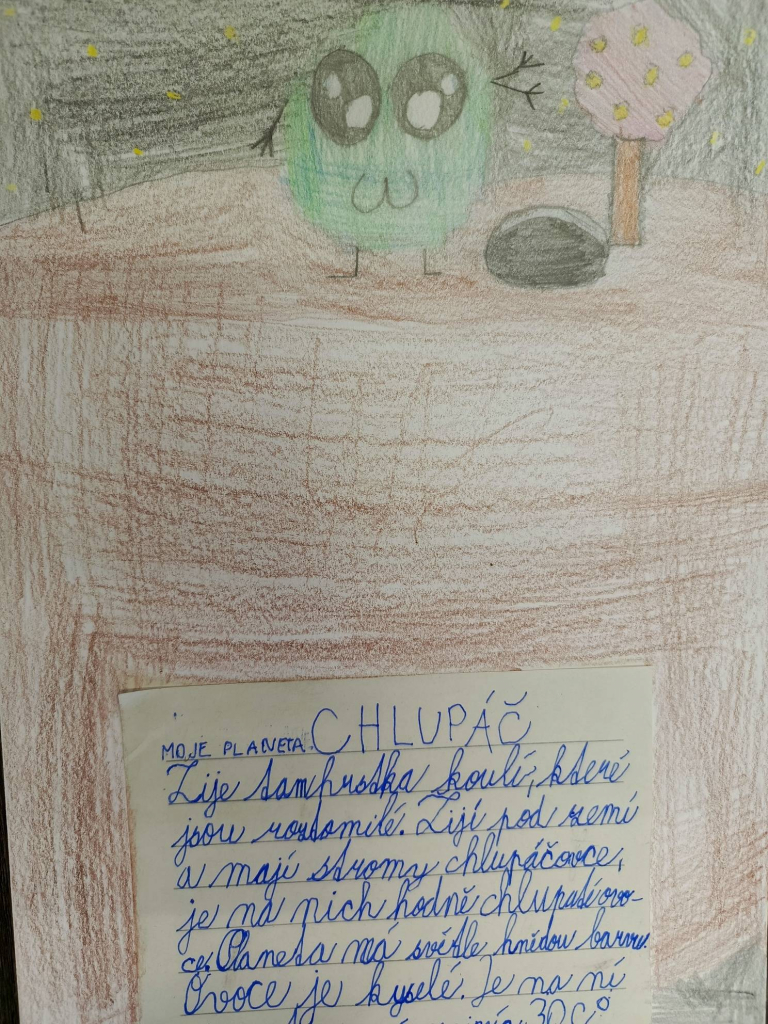 MOJE PLANETA. CHLUPÁČ
Žije tam hrstka koulí, které
jsou roztomilé. Žijí pod zemí
a mají stromy chlupáčovce,
je na nich hodně chlupaté ovo-
ce. Planeta má světle hnědou barvu.
Ovoce je kyselé. Je na ní
30 C°